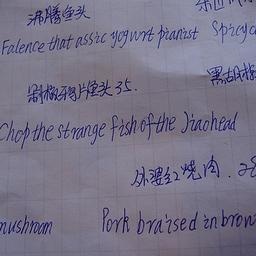 沸腾鱼头
Falence that assic yogwrt pianist Spicy
剁椒 片鱼头 35.
黑胡椒
Chop the strange fish of the Jiaohead
外婆红烧肉. 28
mushroom
Pork braised in brown